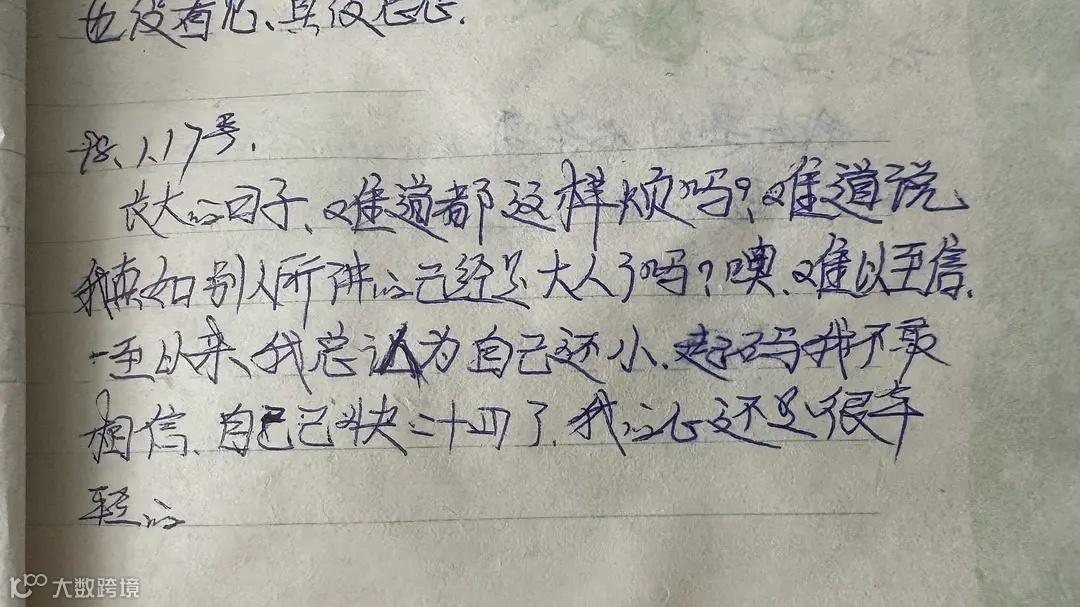 也没有忆、真没忘忘.
98、1、17号.
长大的日子、难道都这样烦吗？难道说
我真如别人所讲的己经是大人了吗？噢、难以至信、
一至以来、我总认为自己还小、起码我不敢
相信、自己己快二十四了、我的心还是很年
轻的
大数跨境